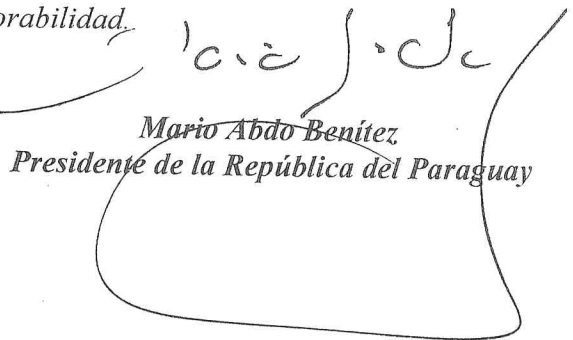 orabilidad.
Mario Abdo Benítez
Presidente de la República del Paraguay